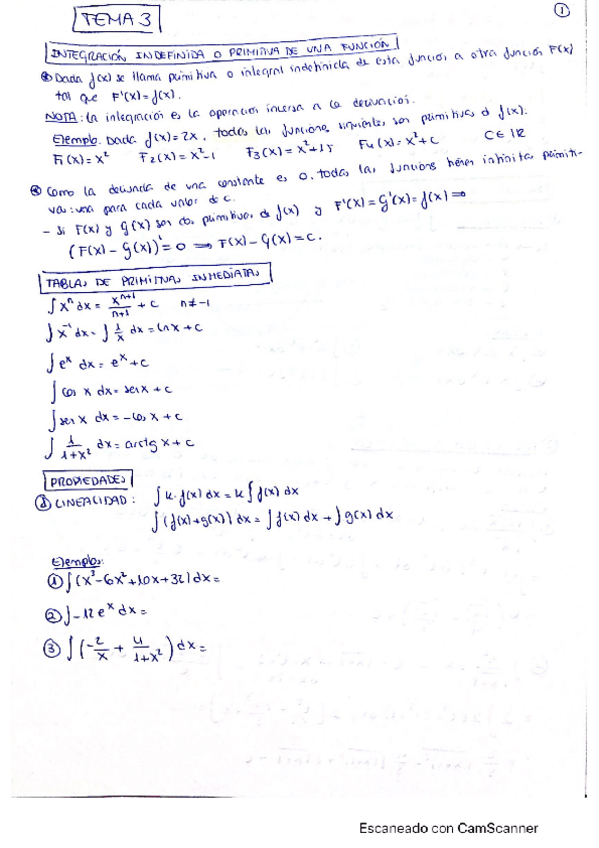 TEMA 3
1
INTEGRACIÓN INDEFINIDA O PRIMITIVA DE UNA FUNCIÓN
Dada f(x) se llama primitiva o integral indefinida de esta función a otra función F(x)
tal que F'(x) = f(x).
NOTA: la integración es la operación inversa a la derivación.
Ejemplo. Dada f(x) = 2x, todas las funciones siguientes son primitivas d f(x).
F1(x) = x² F2(x) = x²-1 F3(x) = x²+15 F4(x) = x²+C C∈IR
Como la derivada de una constante es 0, todas las funciones tienen infinitas primiti-
vas: una para cada valor de c.
- Si F(x) y G(x) son dos primitivas d f(x) y F'(x) = G'(x) = f(x) ⇒
(F(x) - G(x))' = 0 ⇒ F(x) - G(x) = C.
TABLAS DE PRIMITIVAS INMEDIATAS
∫x^n dx = x^(n+1)/(n+1) + C n ≠ -1
∫x^-1 dx = ∫1/x dx = ln x + C
∫e^x dx = e^x + C
∫cos x dx = sen x + C
∫sen x dx = -cos x + C
∫1/(1+x²) dx = arctg x + C
PROPIEDADES
1 LINEALIDAD: ∫k·f(x) dx = k∫f(x) dx
∫(f(x)+g(x)) dx = ∫f(x) dx + ∫g(x) dx
Ejemplos:
1 ∫(x³-6x²+10x+32) dx =
2 ∫-12e^x dx =
3 ∫(-2/x + 4/(1+x²)) dx =
Escaneado con CamScanner